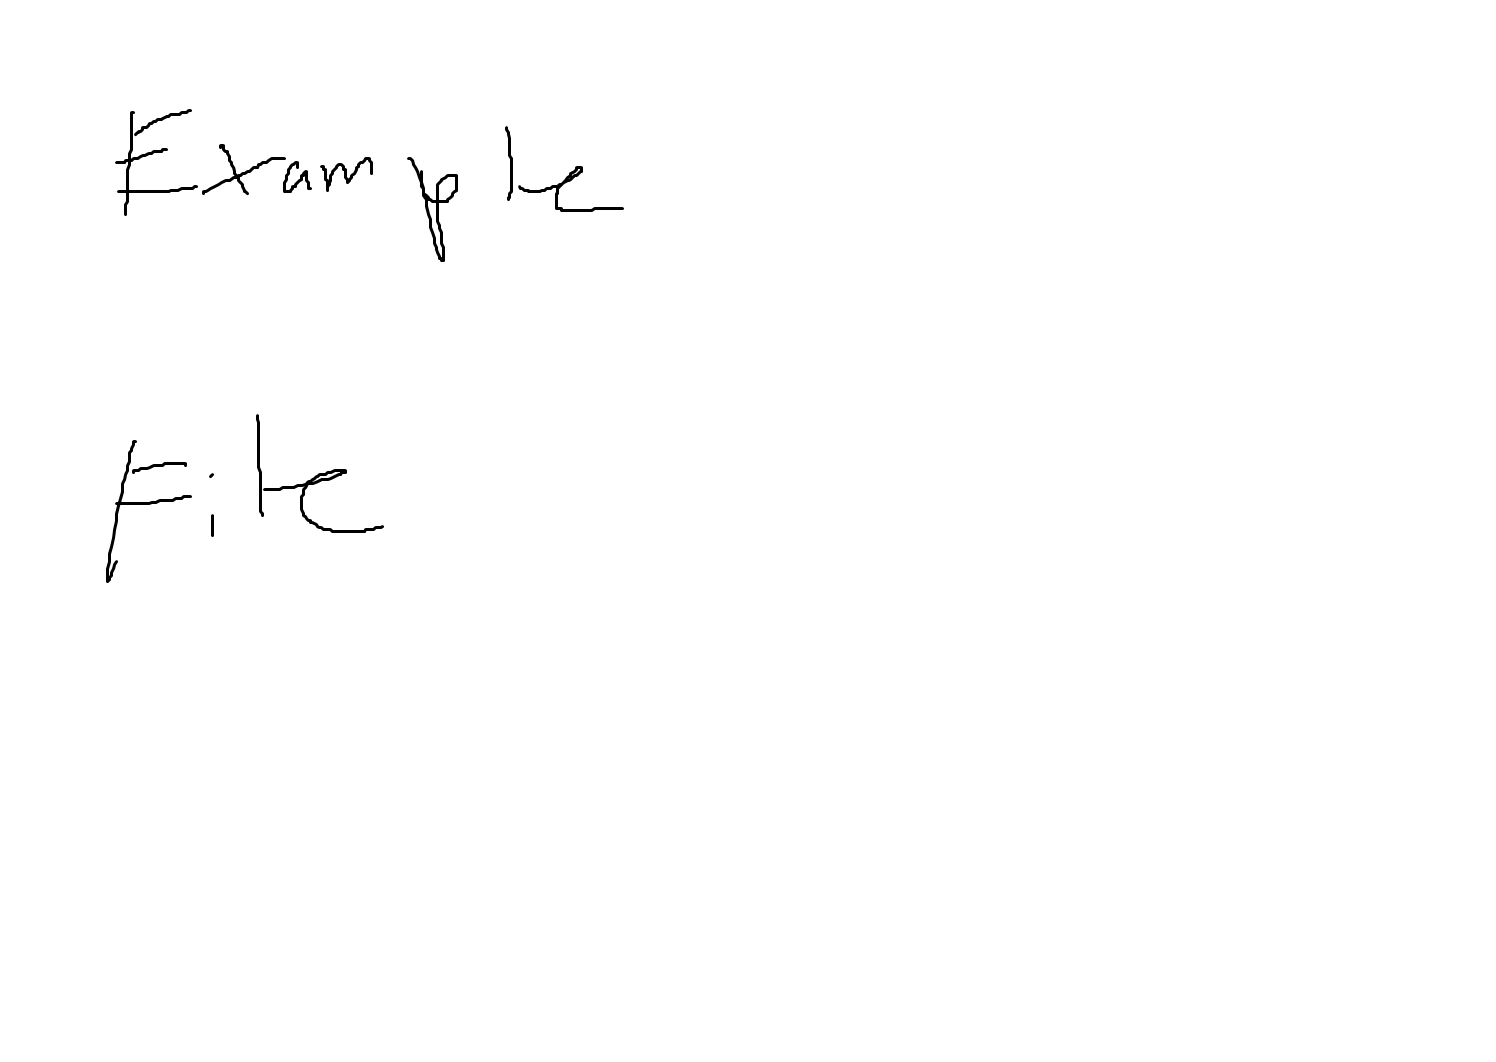 Example
File